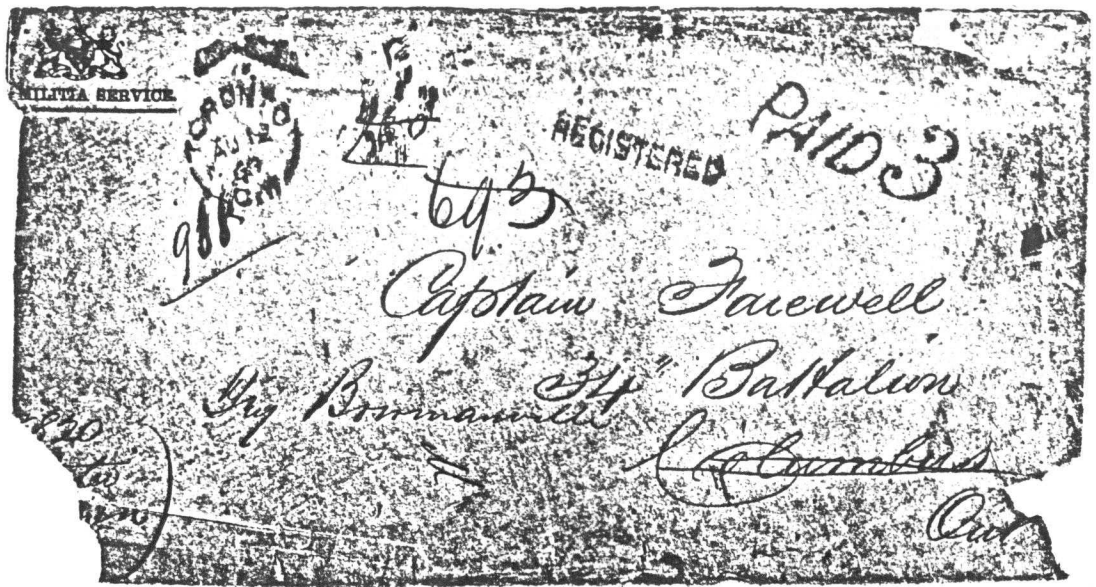 MILITIA SERVICE
TORONTO
AU 12
REGISTERED
PAID 3
693
Captain Farewell
34" Battalion
Try Bowmanville
Columbus
Ont